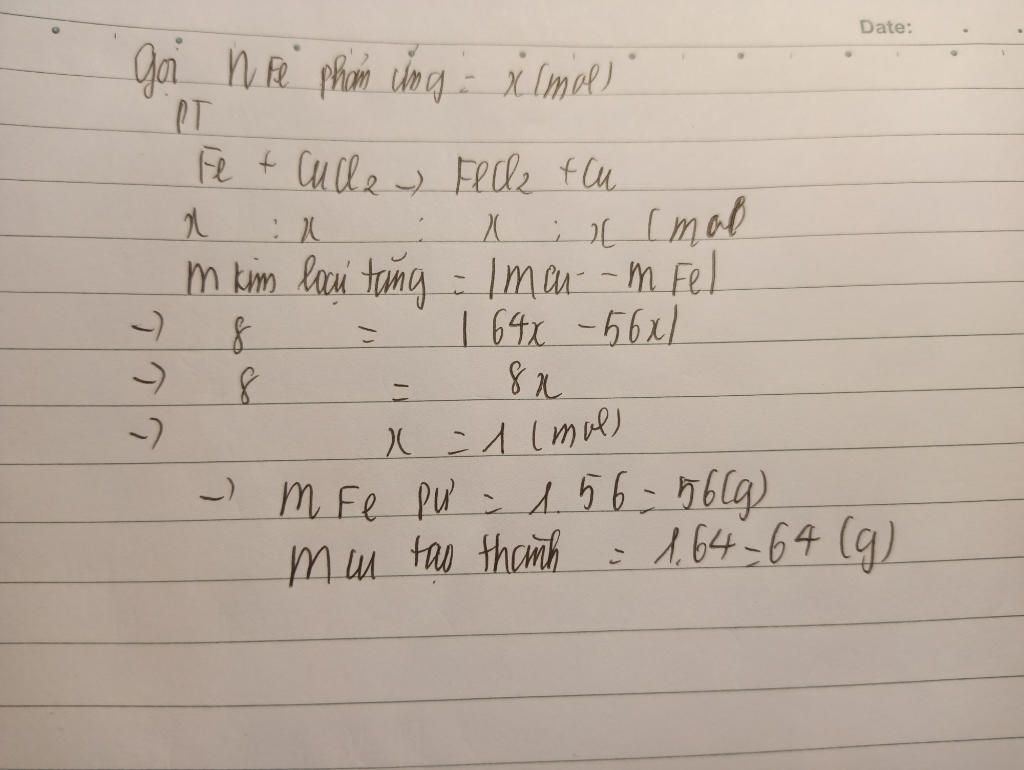 Date:
Gọi n Fe phản ứng = x (mol)
PT
Fe + CuCl2 -> FeCl2 + Cu
x : x : x : x (mol
m kim loại tăng = |mCu - m Fe|
-> 8 = | 64x - 56x|
-> 8 = 8x
-> x = 1 (mol)
-> m Fe pư = 1.56 = 56(g)
m cu tạo thành = 1.64 = 64 (g)